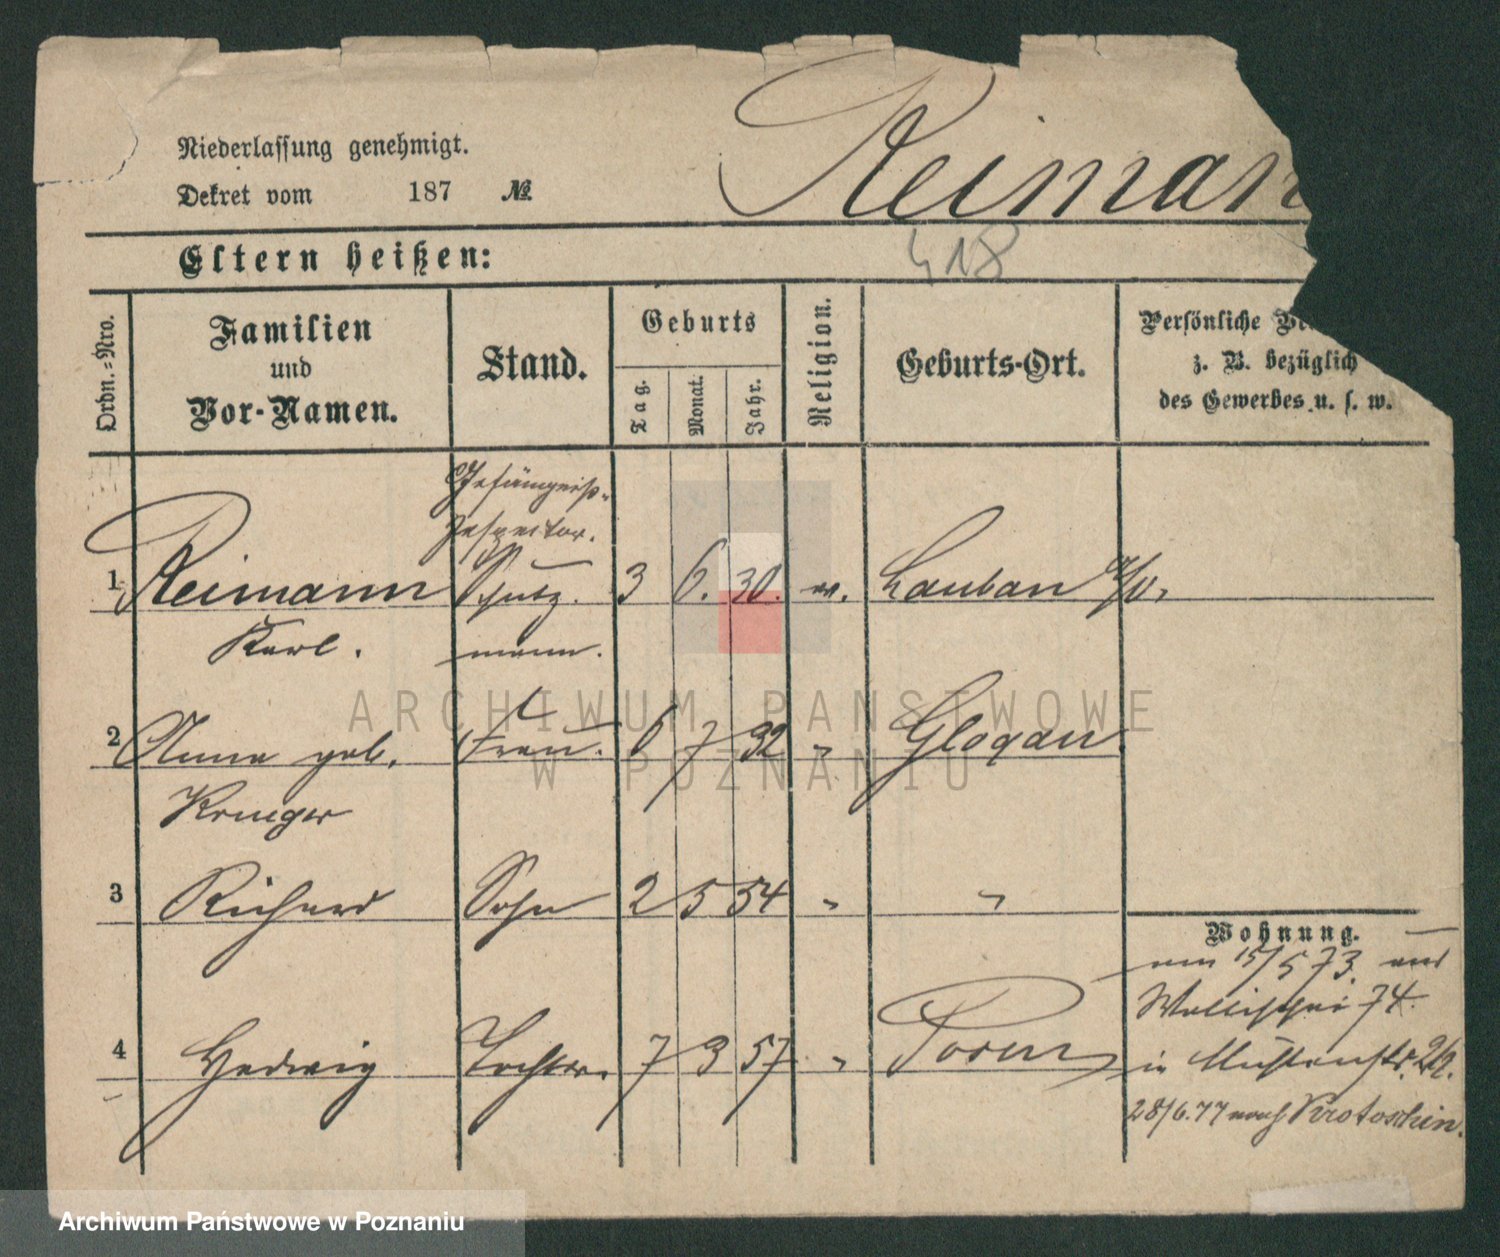 Reiman
Niederlassung genehmigt.
Dekret vom 187 №
Eltern heißen:
418
Ordn.-Nro.
Familien
und
Vor-Namen.
Stand.
Geburts
Tag.
Monat.
Jahr.
Religion.
Geburts-Ort.
Persönliche
z. B. bezüglich
des Gewerbes u. s. w.
Gefängniß-
Inspector.
1 Reimann Schutz- 3 6. 30. Lauban
Karl. mann.
2 Anna geb. Frau. 6 7 32 " Glogau.
Krueger
3 Richard Sohn 2 5 54 " "
Wohnung.
15/5 73. aus
Wallischei 74.
4 Hedwig Tochter. 7 3 57 " Posen
in
28/6.77 nach Krotoschin.
ARCHIWUM PAŃSTWOWE
W POZNANIU
Archiwum Państwowe w Poznaniu